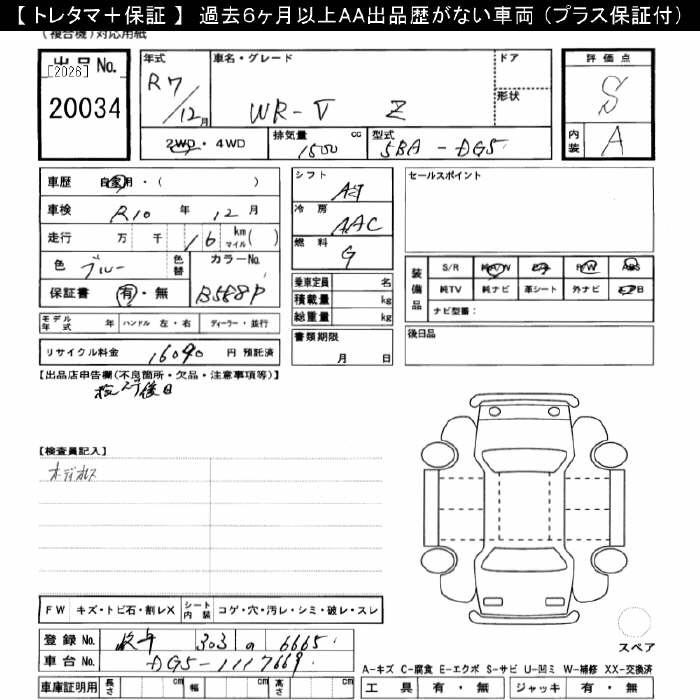 【 トレタマ＋保証 】 過去6ヶ月以上AA出品歴がない車両（プラス保証付）
(複合機)対応用紙
出品No.
[2026]
20034
年式
R7/12月
車名・グレード
WR-V Z
ドア
形状
評価点
S
内装
A
2WD・4WD
排気量 1500 cc
型式 5BA-DG5
車歴 自家用・( )
車検 R10 年 12 月
走行 万 千 16 km マイル( )
色 ブルー
色替
カラーNo.
B588P
保証書 有・無
シフト AT
冷房 AAC
燃料 G
乗車定員 名
積載量 kg
総重量 kg
セールスポイント
装備品
S/R
革シート
純TV
純ナビ
外ナビ
ナビ型番:
モデル年式 年
ハンドル 左・右
ディーラー・並行
書類期限
月 日
後日品
リサイクル料金 16090 円 預託済
【出品店申告欄(不良箇所・欠品・注意事項等)】
後日
【検査員記入】
FW キズ・トビ石・割レX
シート内装 コゲ・穴・汚レ・シミ・破レ・スレ
スペア
登録No. 303 の 6665
車台No. DG5-1117669
A-キズ C-腐食 E-エクボ S-サビ U-凹ミ W-補修 XX-交換済
車庫証明用 長さ cm 幅 cm 高さ cm
工具 有・無 ジャッキ 有・無